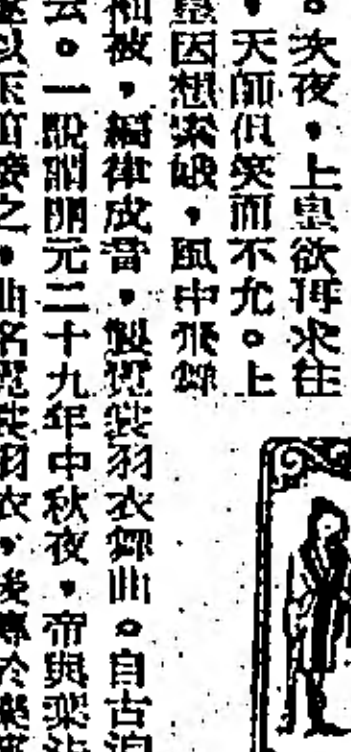 。次夜，上皇欲再求往
，天師但笑而不允。上
皇因想素娥，風中飛舞
袖被，編律成音，製霓裳羽衣舞曲。自古洎
云。一說謂開元二十九年中秋夜，帝與葉法
遂以玉笛接之，曲名霓裳羽衣，後傳於樂